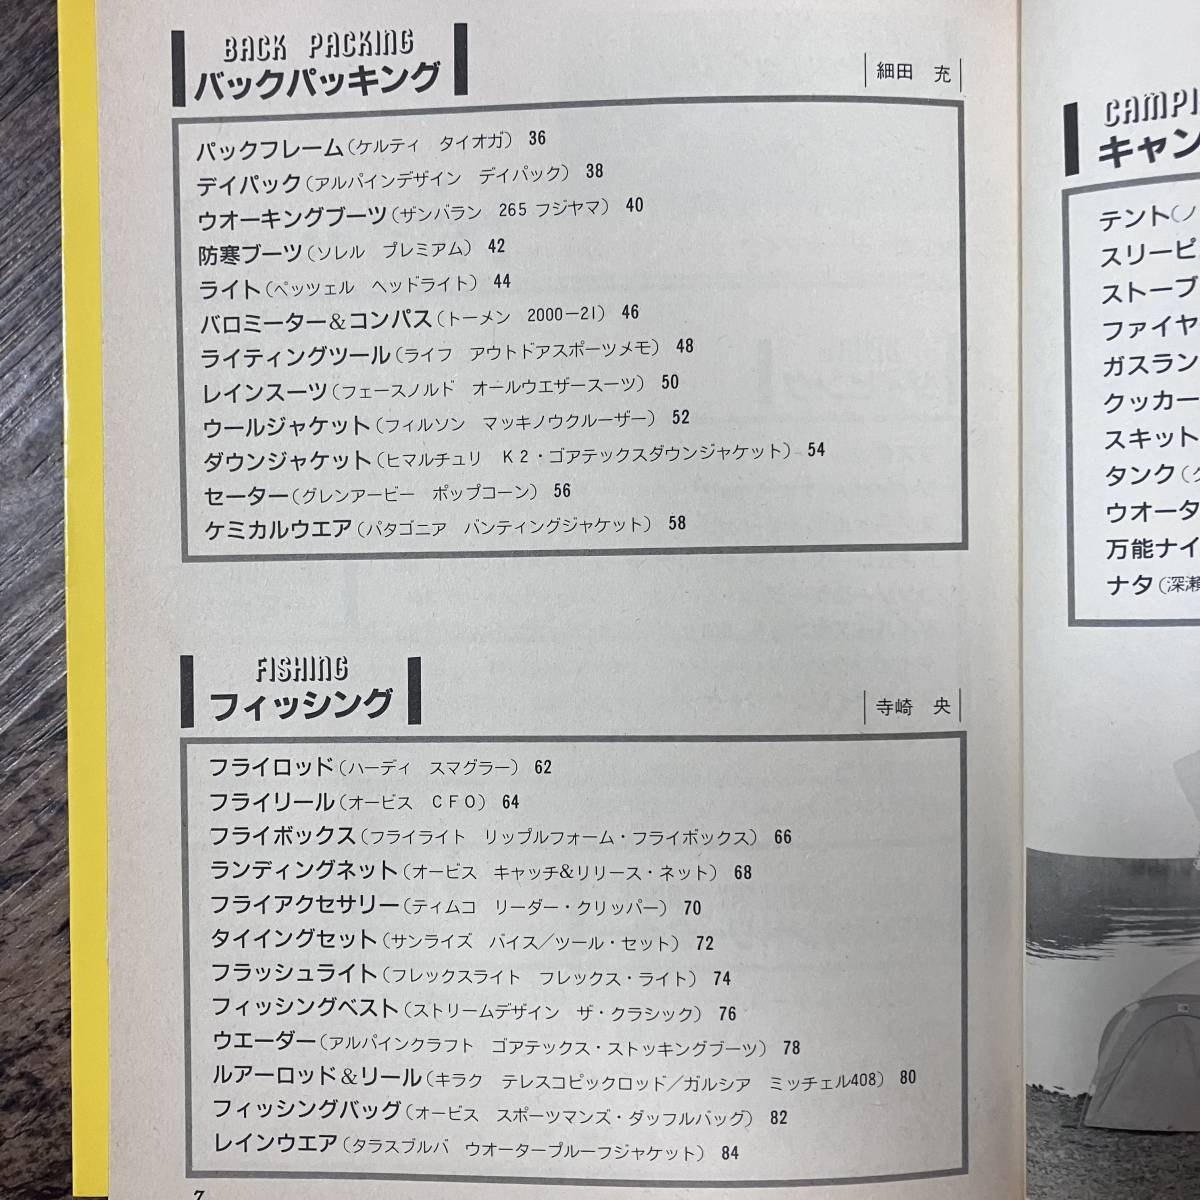 BACK PACKING
バックパッキング
細田 充
パックフレーム(ケルティ タイオガ) 36
デイパック(アルパインデザイン デイパック) 38
ウオーキングブーツ(ザンバラン 265 フジヤマ) 40
防寒ブーツ(ソレル プレミアム) 42
ライト(ペッツェル ヘッドライト) 44
バロミーター&コンパス(トーメン 2000−21) 46
ライティングツール(ライフ アウトドアスポーツメモ) 48
レインスーツ(フェースノルド オールウエザースーツ) 50
ウールジャケット(フィルソン マッキノウクルーザー) 52
ダウンジャケット(ヒマルチュリ K2・ゴアテックスダウンジャケット) 54
セーター(グレンアービー ポップコーン) 56
ケミカルウエア(パタゴニア バンティングジャケット) 58
FISHING
フィッシング
寺崎 央
フライロッド(ハーディ スマグラー) 62
フライリール(オービス CFO) 64
フライボックス(フライライト リップルフォーム・フライボックス) 66
ランディングネット(オービス キャッチ&リリース・ネット) 68
フライアクセサリー(ティムコ リーダー・クリッパー) 70
タイイングセット(サンライズ バイス/ツール・セット) 72
フラッシュライト(フレックスライト フレックス・ライト) 74
フィッシングベスト(ストリームデザイン ザ・クラシック) 76
ウエーダー(アルパインクラフト ゴアテックス・ストッキングブーツ) 78
ルアーロッド&リール(キラク テレスコピックロッド/ガルシア ミッチェル408) 80
フィッシングバッグ(オービス スポーツマンズ・ダッフルバッグ) 82
レインウエア(タラスブルバ ウオータープルーフジャケット) 84
7
CAMPI
キャン
テント(ノ
スリーピ
ストーブ
ファイヤ
ガスラン
クッカー
スキット
タンク(
ウオータ
万能ナイ
ナタ(深瀬